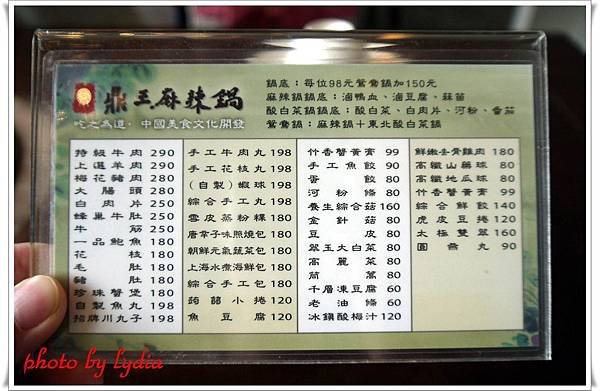 鼎王麻辣鍋
吃之為道．中國美食文化開發
鍋底：每位98元鴛鴦鍋加150元
麻辣鍋鍋底：滷鴨血、滷豆腐、蒜苗
酸白菜鍋鍋底：酸白菜、白肉片、河粉、番茄
鴛鴦鍋：麻辣鍋＋東北酸白菜鍋
特級牛肉 290
上選羊肉 290
梅花豬肉 280
大腸頭 280
白肉片 250
蜂巢牛肚 250
牛筋 250
一品鮑魚 180
花枝 180
毛肚 180
豬肚 180
珍珠蟹堡 180
自製魚丸 198
招牌川丸子 198
手工牛肉丸 198
手工花枝丸 198
（自製）蝦球 198
綜合手工丸 198
雲皮蒸粉粿 180
唐掌子味照燒包 180
朝鮮元氣蔬菜包 180
上海水煮海鮮包 180
綜合手工包 180
蒟蒻小捲 120
魚豆腐 120
竹香蟹黃膏 99
手工魚餃 90
蛋餃 80
河粉條 80
養生綜合菇 160
金針菇 80
豆皮 80
翠玉大白菜 80
高麗菜 80
茼蒿 80
千層凍豆腐 60
老油條 60
冰鎮酸梅汁 120
鮮嫩去骨雞肉 180
高纖山藥球 80
高纖地瓜球 80
竹香蟹黃膏 99
綜合鮮餃 140
虎皮豆捲 120
太極雙翠 160
圓燕丸 90
photo by Lydia